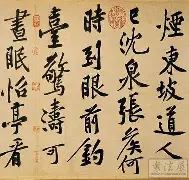 煙東坡道人
已沈泉張侯何
時到眼前釣
臺驚濤可
晝眠怡亭看